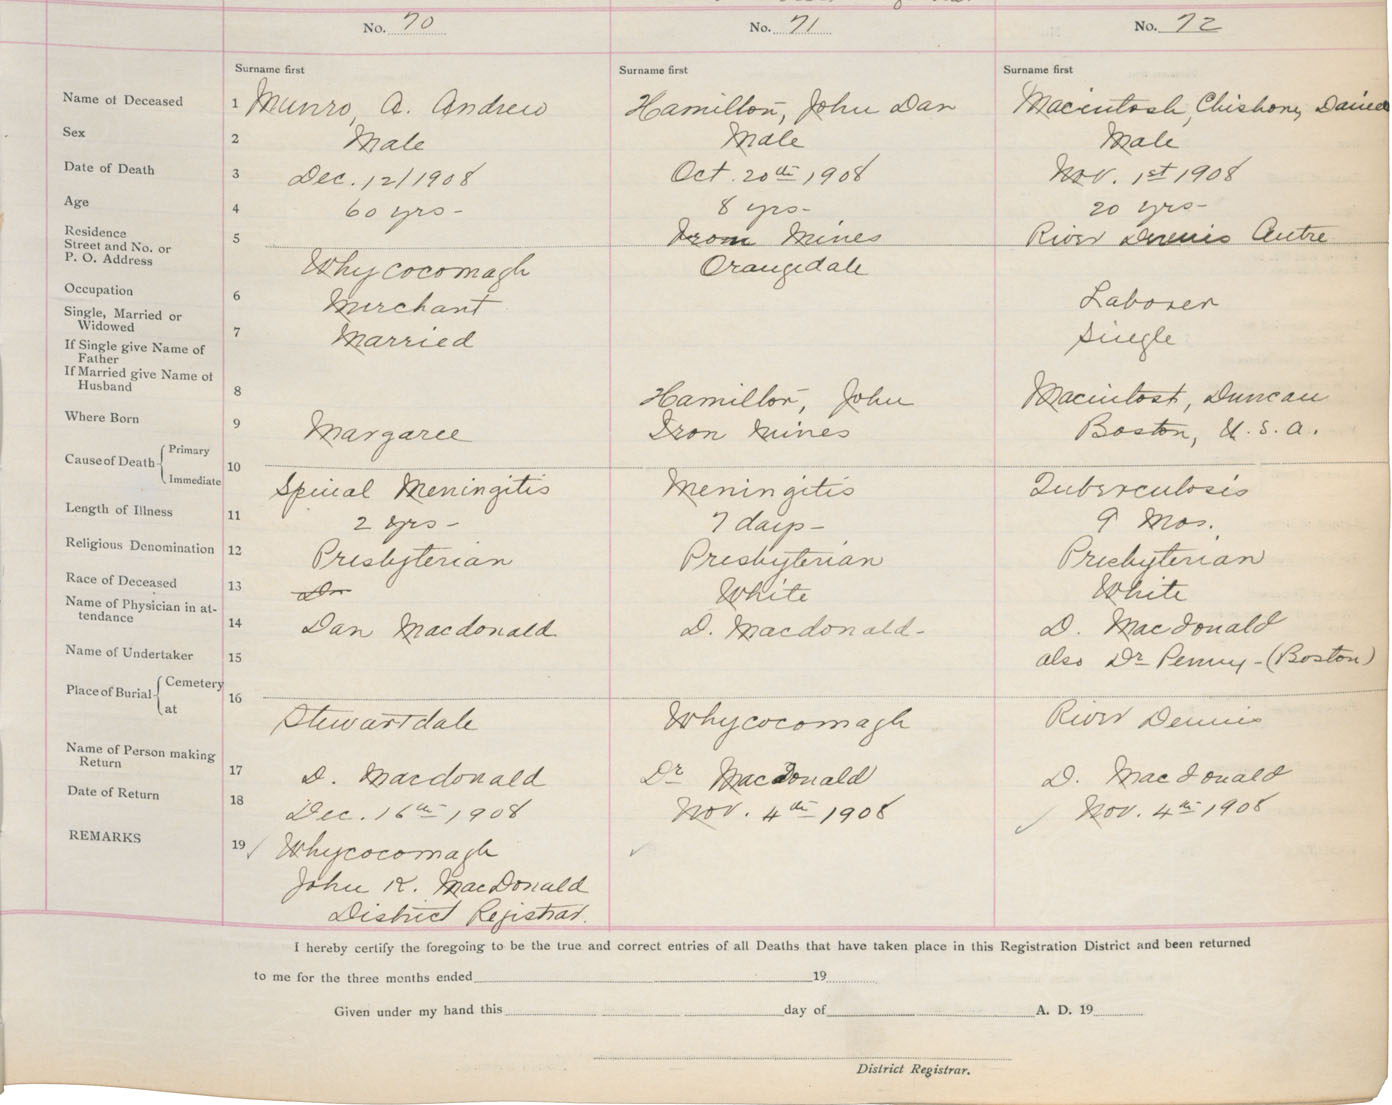 No. 70 No. 71 No. 72
Surname first Surname first Surname first
Name of Deceased 1 Munro, A. Andrew Hamilton, John Dan Macintosh, Chisholm, Daniel
Sex 2 Male Male Male
Date of Death 3 Dec. 12/1908 Oct. 20th 1908 Nov. 1st 1908
Age 4 60 yrs- 8 yrs- 20 yrs-
Residence
Street and No. or
P. O. Address
5 Iron Mines River Dennis Centre
Whycocomagh Orangedale
Occupation 6 Merchant Laborer
Single, Married or
Widowed
7 Married Single
If Single give Name of
Father
If Married give Name of
Husband
8 Hamilton, John Macintosh, Duncan
Where Born 9 Margaree Iron Mines Boston, U.S.A.
Cause of Death Primary
Immediate
10 Spinal Meningitis Meningitis Tuberculosis
Length of Illness 11 2 yrs- 7 days- 9 Mos.
Religious Denomination 12 Presbyterian Presbyterian Presbyterian
Race of Deceased 13 Dr White White
Name of Physician in at-
tendance
14 Dan Macdonald D. Macdonald- D. MacDonald
Name of Undertaker 15 also Dr Penny-(Boston)
Place of Burial Cemetery
at
16 Stewartdale Whycocomagh River Dennis
Name of Person making
Return
17 D. Macdonald Dr MacDonald D. MacDonald
Date of Return 18 Dec. 16th 1908 Nov. 4th 1908 Nov. 4th 1908
REMARKS 19 Whycocomagh
John K. MacDonald
District Registrar.
I hereby certify the foregoing to be the true and correct entries of all Deaths that have taken place in this Registration District and been returned
to me for the three months ended 19
Given under my hand this day of A. D. 19
District Registrar.